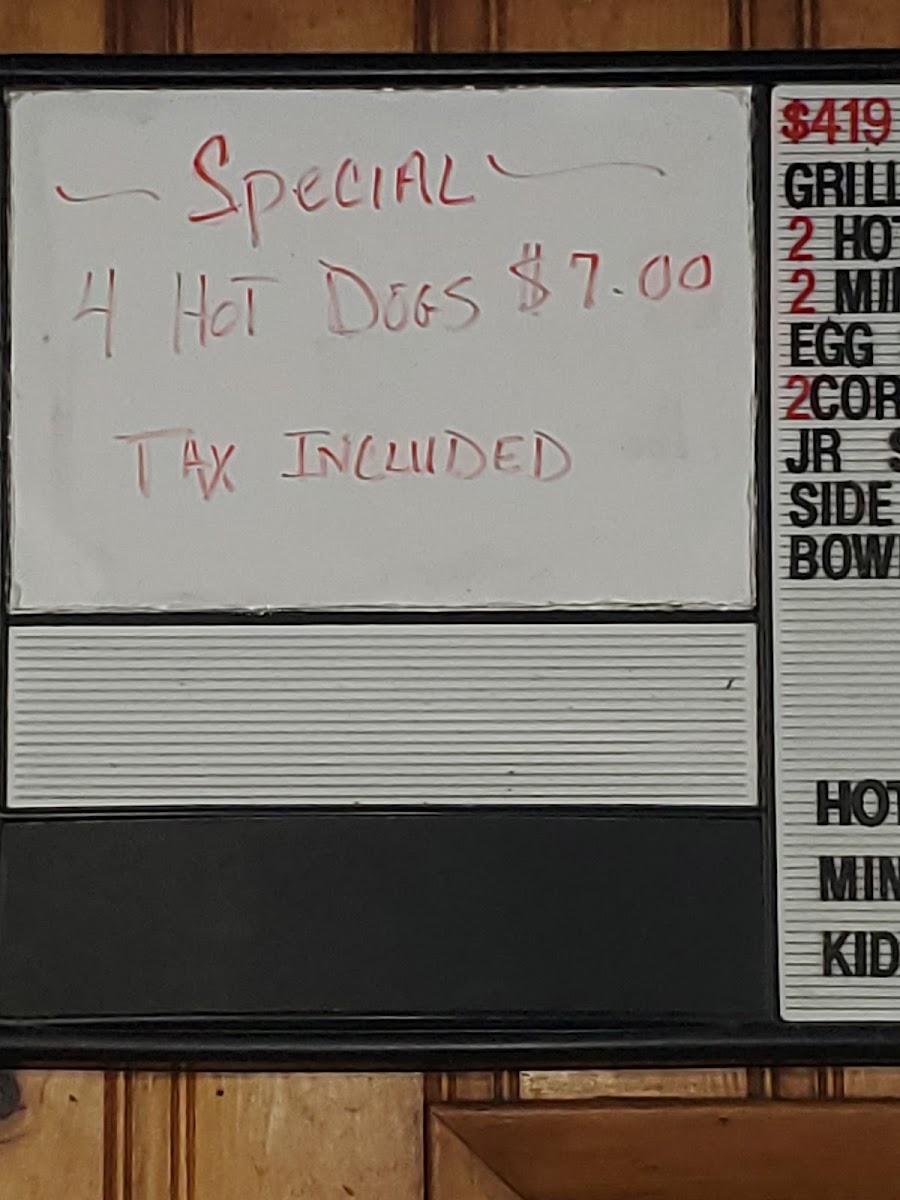 Special
4 Hot Dogs $7.00
Tax Included
$419
GRILL
2 HOT
2 MIN
EGG
2COR
JR S
SIDE
BOW
HOT
MIN
KID